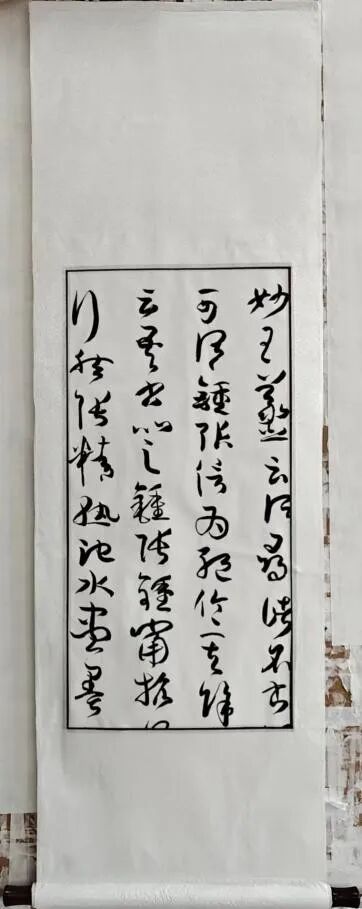 妙王羲之云頃尋諸名書
可謂鍾張信為絕倫其餘
云吾書比之鍾張鍾當抗
行然張精熟池水盡墨